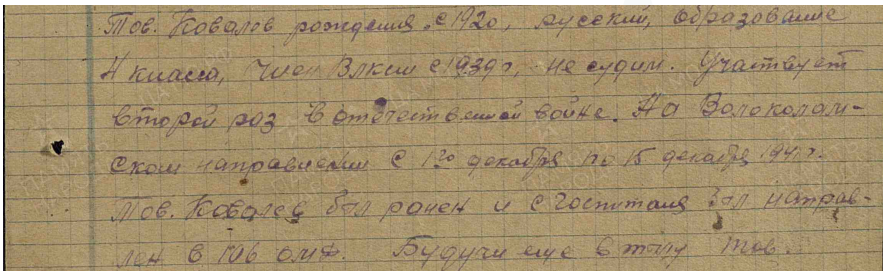 Тов. Ковалев рождения с 1920, русский, образование
4 класса, член Влксм с 1939 г, не судим. Участвует
второй раз в отечественной войне. На Волоколам-
ском направлении с 1го декабря по 15 декабря 1941 г.
Тов. Ковалев был ранен и с госпиталя был направ-
лен в Будучи еще в тылу тов.